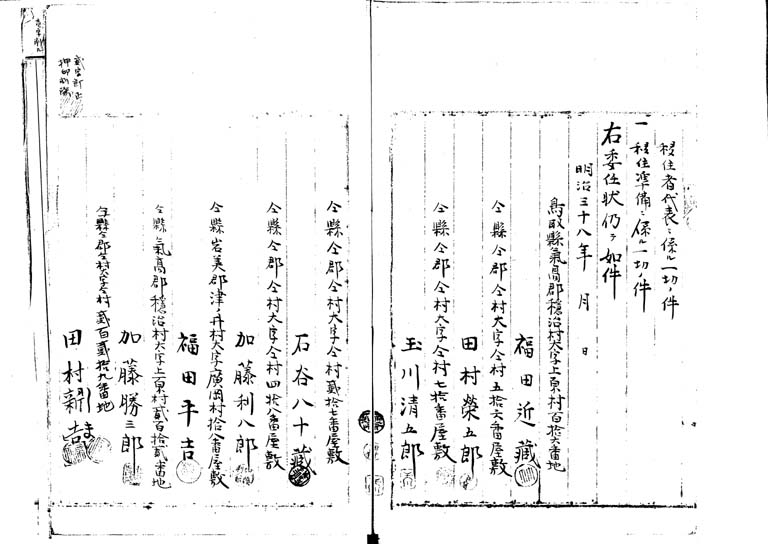 移住者代表ニ係ル一切ノ件
一 移住準備ニ係ル一切ノ件
右委任状仍テ如件
明治三十八年 月 日
鳥取縣氣高郡穏治村大字上原村百拾六番地
福田近藏
仝縣仝郡仝村大字仝村五拾六番屋敷
田村榮五郎
仝縣仝郡仝村七拾番屋敷
玉川清五郎
仝縣仝郡仝村大字仝村貳拾七番屋敷
石谷八十藏
仝縣仝郡仝村大字仝村四拾八番屋敷
加藤利八郎
仝縣岩美郡津ノ井村大字廣岡村拾八番屋敷
福田平吉
仝縣氣高郡穏治村大字上原村貳百拾貳番地
加藤勝三郎
仝縣仝郡仝村大字仝村貳百貳拾九番地
田村新吉